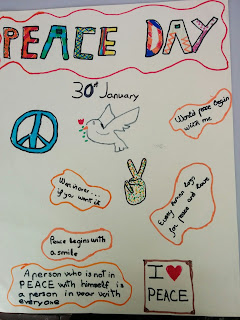 PEACE DAY
30st January
World peace begin
with me
War is over...
if you want it
Every human begs
for peace and love
Peace begins with
a smile
A person who is not in
PEACE with himself is
a person in war with
everyone
I ♥
PEACE